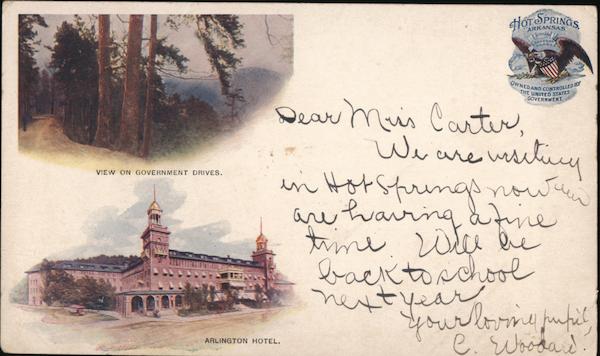 HOT SPRINGS,
ARKANSAS
OWNED AND CONTROLLED BY
THE UNITED STATES
GOVERNMENT.
VIEW ON GOVERNMENT DRIVES.
ARLINGTON HOTEL.
Dear Miss Carter,
We are visiting
in Hot Springs now and
are having a fine
time. Will be
back to school
next year
Your loving pupil,
C. Woodard.